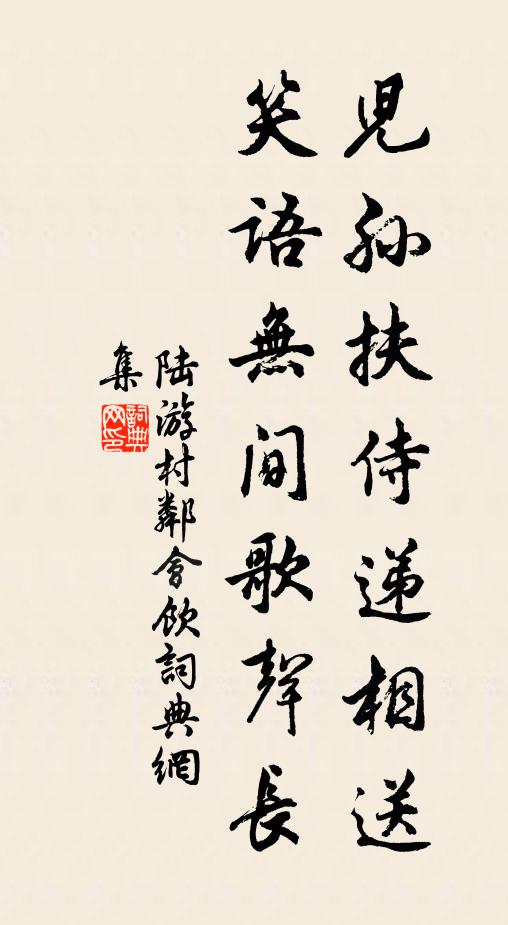 児孙扶侍递相送
笑語無间歌聲長
陆游村鄰會飲詞典網
集
詞典
网印